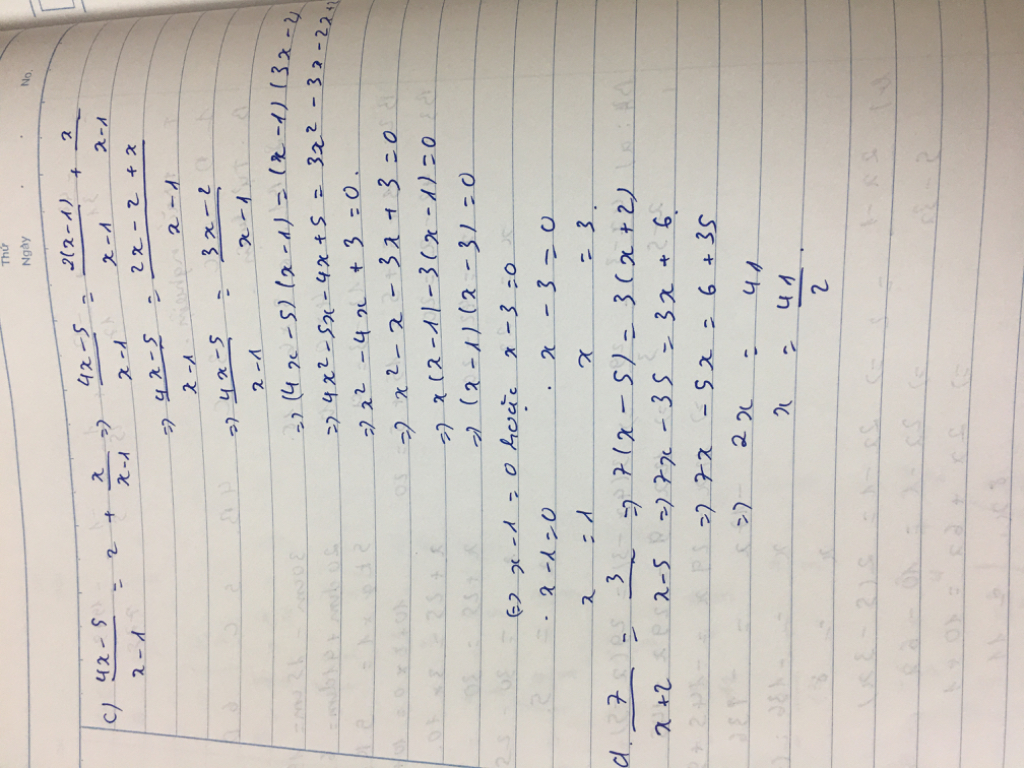 No.
Thứ
Ngày
c) (4x - 5)/(x - 1) = 2 + x/(x - 1) => (4x - 5)/(x - 1) = 2(x - 1)/(x - 1) + x/(x - 1)
=> (4x - 5)/(x - 1) = (2x - 2 + x)/(x - 1)
=> (4x - 5)/(x - 1) = (3x - 2)/(x - 1)
=> (4x - 5)(x - 1) = (x - 1)(3x - 2)
=> 4x² - 5x - 4x + 5 = 3x² - 3x - 2x +
=> x² - 4x + 3 = 0.
=> x² - x - 3x + 3 = 0
=> x(x - 1) - 3(x - 1) = 0
=> (x - 1)(x - 3) = 0
(=> x - 1 = 0 hoặc x - 3 = 0
. x - 1 = 0 . x - 3 = 0
x = 1 x = 3
d. 7/(x + 2) = 3/(x - 5) => 7(x - 5) = 3(x + 2)
=> 7x - 35 = 3x + 6
=> 7x - 5x = 6 + 35
=> 2x = 41
x = 41/2.